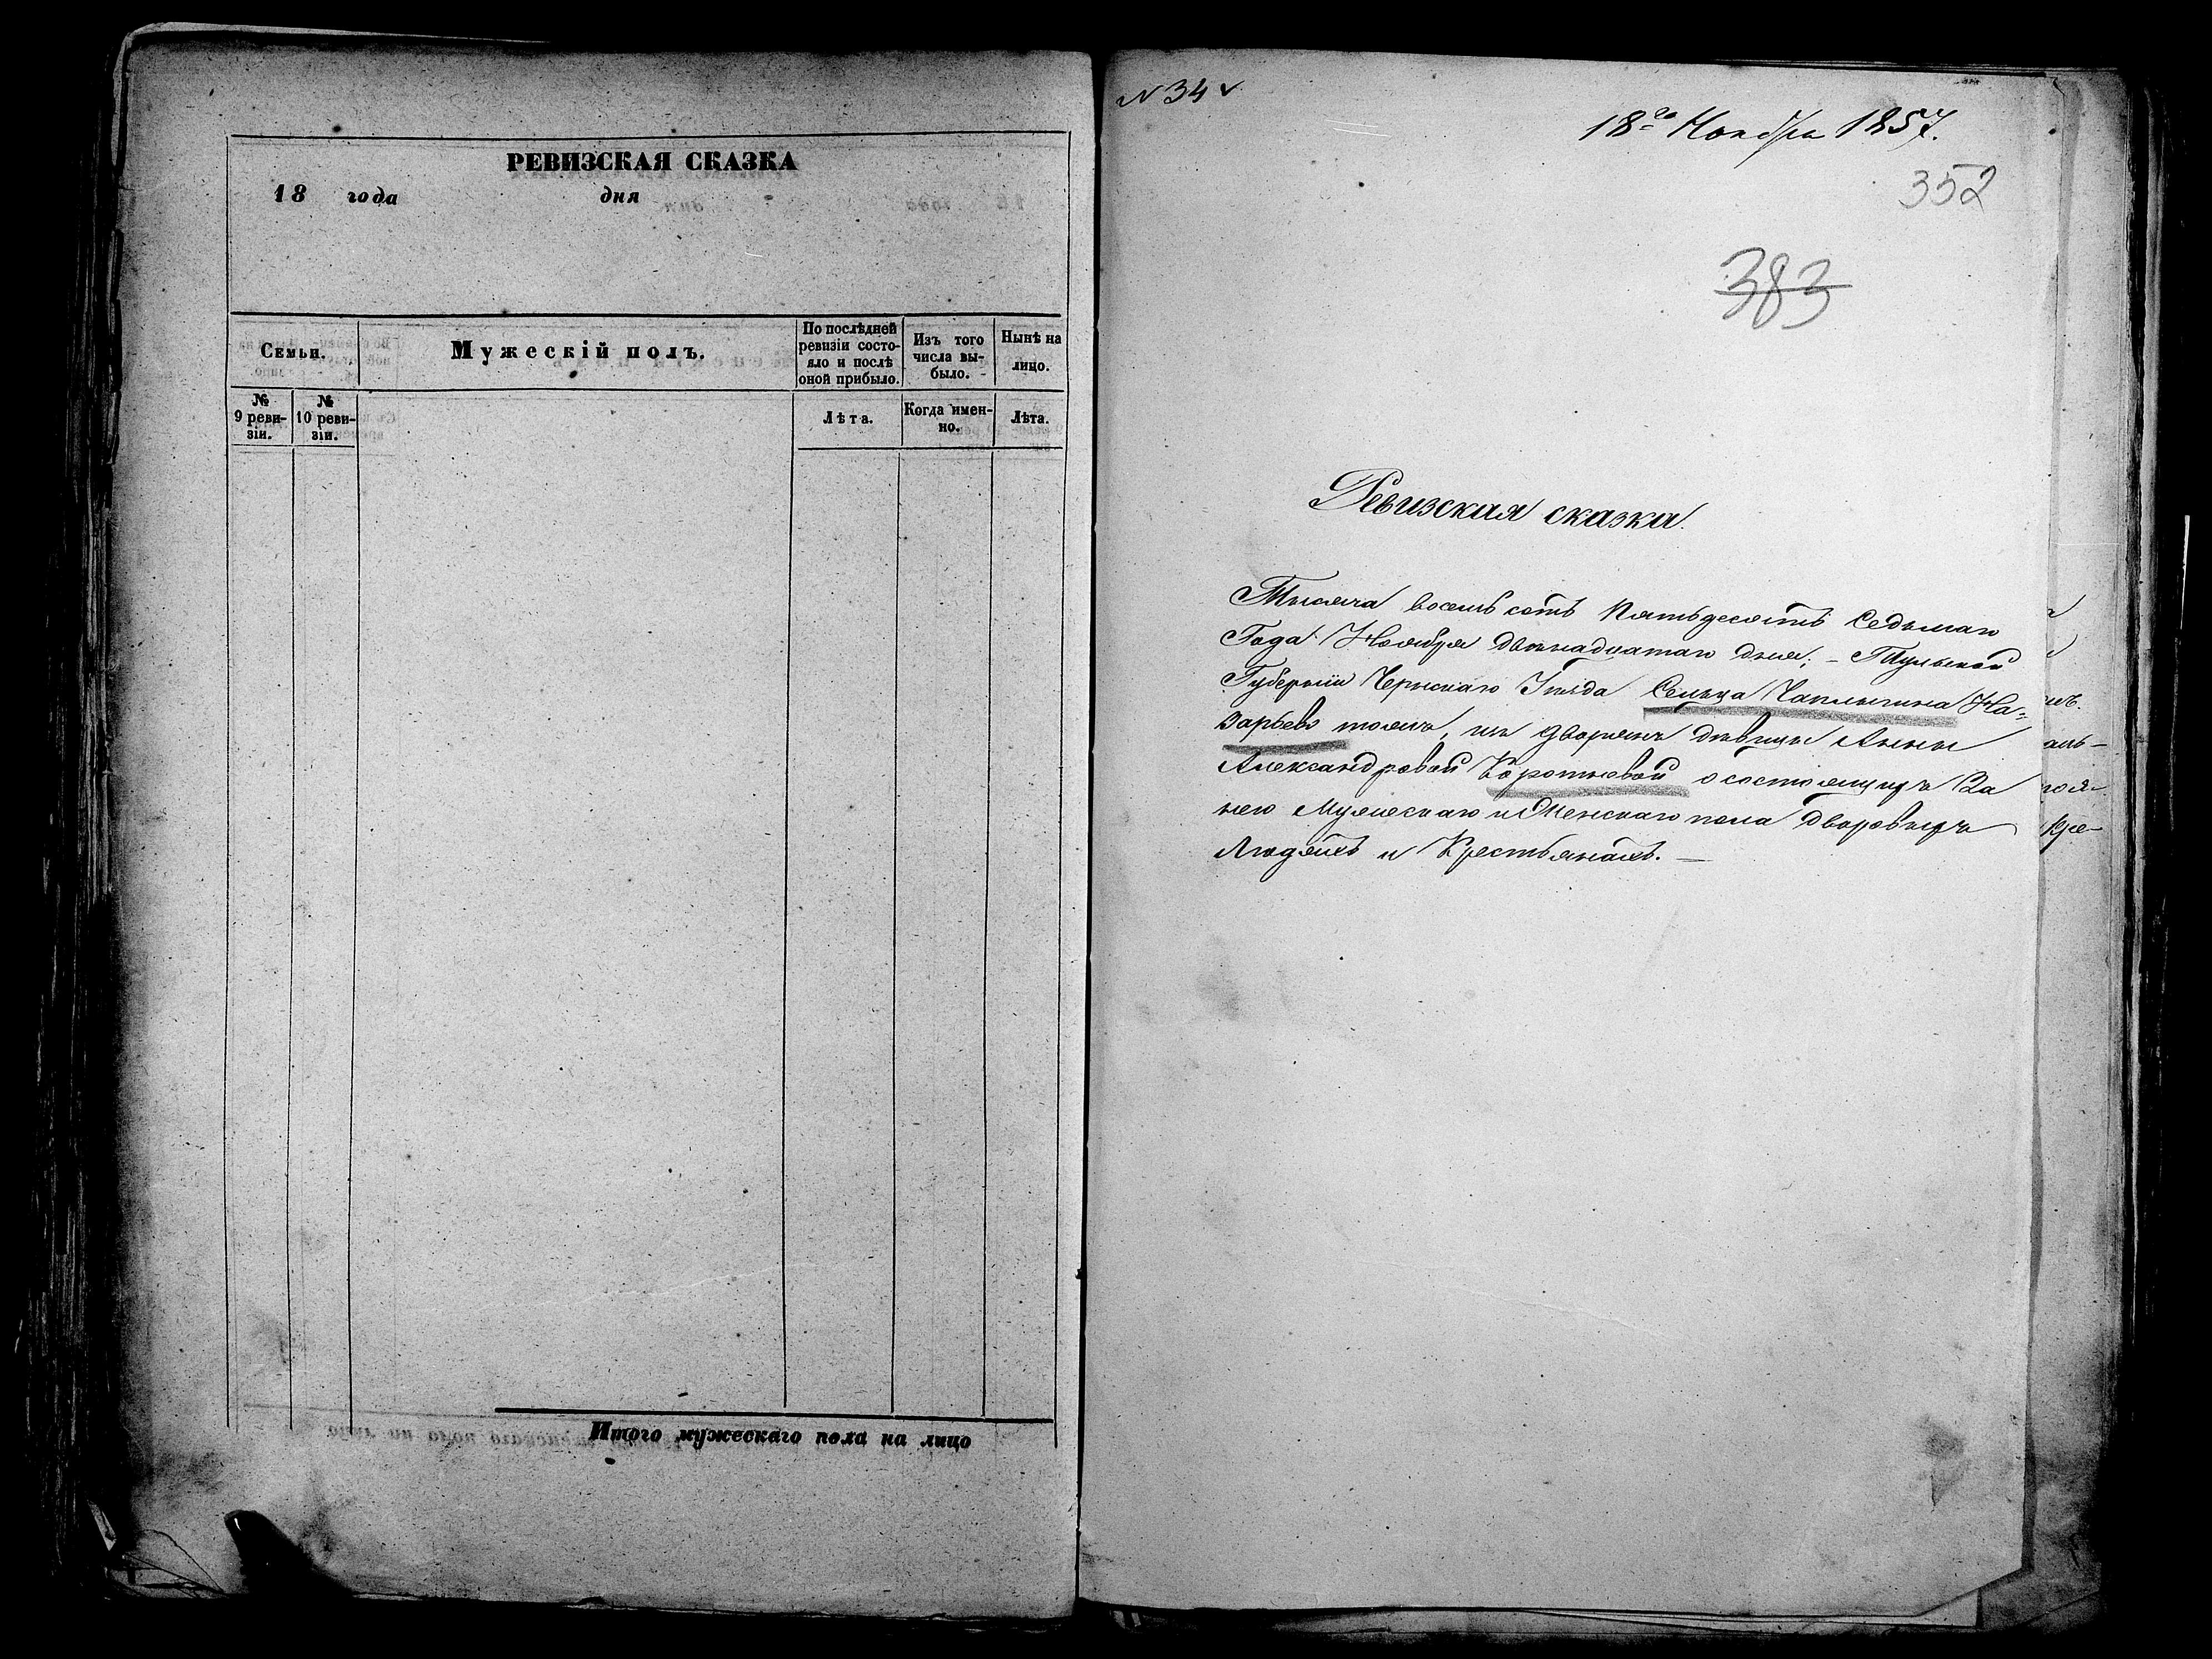 РЕВИЗСКАЯ СКАЗКА
18 года дня
Семьи.
Мужескій полъ.
По послѣдней ревизіи состо-
яло и послѣ оной прибыло.
Изъ того числа вы-
было.
Нынѣ на лицо.
№ 9 реви-
зіи.
№ 10 реви-
зіи.
Лѣта.
Когда имен-
но.
Лѣта.
Итого мужескаго пола на лицо
N 34
18го Ноября 1857.
352
383
Ревизская сказка.
Тысяча восемь сотъ Пятьдесятъ Седьмаго
Года Ноября двѣнадцатаго дня; – Тульской
Губерніи Чернскаго Уѣзда Сельца Чаплыгина На=
зарьево тожъ, изъ дворянъ дѣвицы Анны
Александровой Коротневой о состоящихъ За
нею Мужескаго и Женскаго пола дворовыхъ
Людяхъ и Крестьянахъ. —